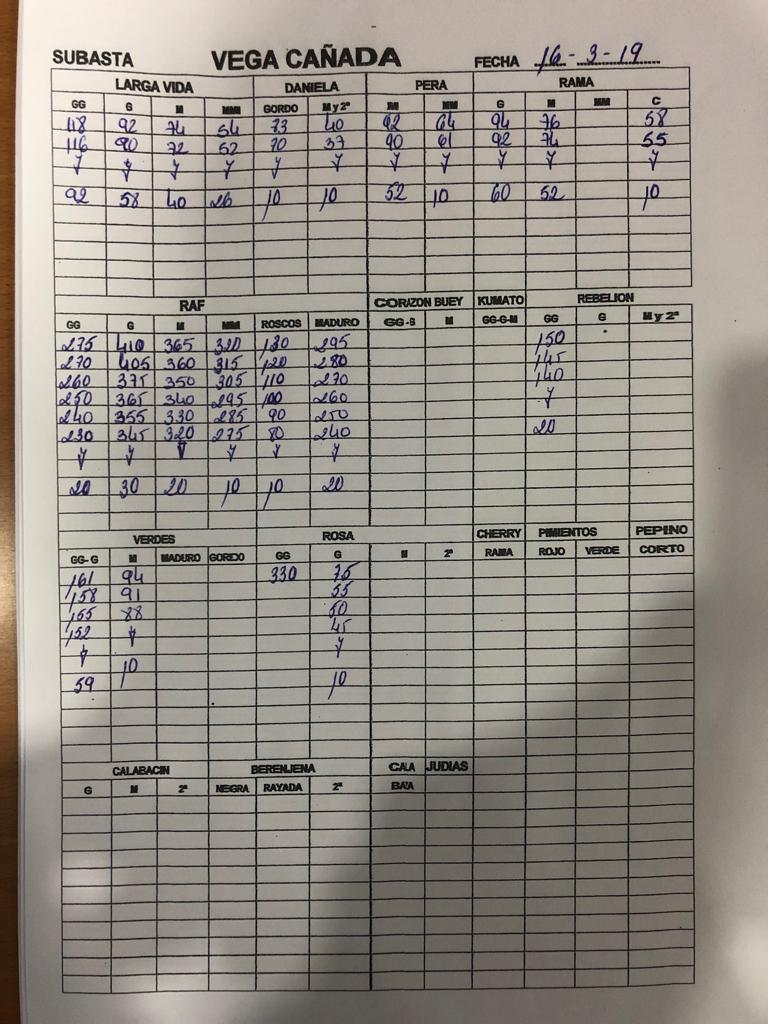 SUBASTA VEGA CAÑADA FECHA 16-3-19
LARGA VIDA DANIELA PERA RAMA
GG G M MM GORDO M y 2ª M MM G M MM C
118 92 74 54 73 40 92 64 94 76 58
116 90 72 52 70 37 90 61 92 74 55
92 58 40 26 10 10 52 10 60 52 10
RAF CORAZON BUEY KUMATO REBELION
GG G M MM ROSCOS MADURO GG-G M GG-G-M GG G M y 2ª
275 410 365 320 130 295 150
270 405 360 315 120 280 145
260 375 350 305 110 270 140
250 365 340 295 100 260
240 355 330 285 90 250
230 345 320 275 80 240 20
20 30 20 10 10 20
VERDES ROSA CHERRY PIMIENTOS PEPINO
GG-G M MADURO GORDO GG G M 2ª RAMA ROJO VERDE CORTO
161 94 330 75
158 91 55
155 88 50
152 45
10
59 10
CALABACIN BERENJENA CAIA JUDIAS
G M 2ª NEGRA RAYADA 2ª BAJA